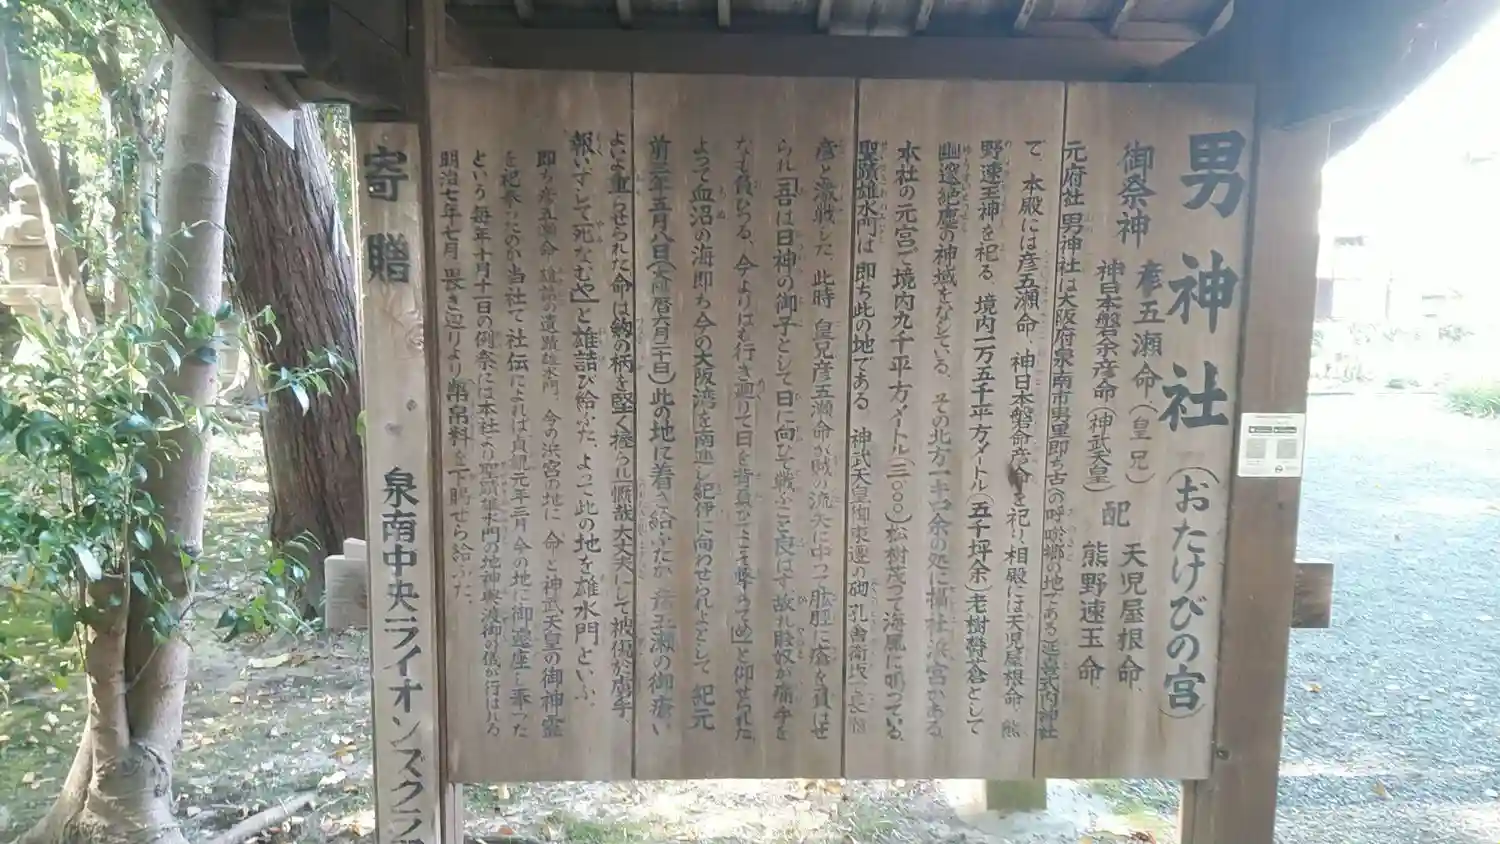 男神社(おたけびの宮)
御祭神
彦五瀬命(皇兄)
神日本磐余彦命(神武天皇)
配
天児屋根命、
熊野速玉命、
元府社 男神社は大阪府泉南市男里即ち古への呼唹郷の地である延喜式内神社
で、本殿には彦五瀬命、神日本磐余彦命を祀り相殿には天児屋根命、熊
野速玉神を祀る、境内一万五千平方メートル(五千坪余)老樹欝蒼として
幽邃絶塵の神域をなしている、その北方一キロ余の処に摂社浜宮がある、
本社の元宮で境内九千平方メートル(三〇〇〇)松樹茂って海風に鳴っている、
聖蹟雄水門は即ち此の地である 神武天皇御東遷の砌孔舎衛坂で長髄
彦と激戦した、此時 皇兄彦五瀬命が賊の流矢に中って肱脛に瘡を負はせ
られ「吾は日神の御子として日に向ひて戦ふこと良はず故れ賤奴が痛手を
なも負ひつる、今よりはも行き廻りて日を背負ひてこそ撃ちてめ」と仰せられた、
よって血沼の海即ち今の大阪湾を南進し紀伊に向わせられよとして 紀元
前三年五月八日(太陽暦六月二十日)此の地に着き給いたが 彦五瀬の御瘡い
よいよ重らせられた命は剣の柄を堅く握られ「慨哉大丈夫にして被傷於虜手、
報いずして死なむや」と雄詰び給ふた、よって此の地を雄水門といふ、
即ち彦五瀬命 雄詰の遺蹟雄水門、今の浜宮の地に 命と神武天皇の御神霊
を祀奉ったのが当社で社伝によれば貞観元年三月今の地に御遷座し奉った
という 毎年十月十一日の例祭には本社より聖蹟雄水門の地神輿渡御の儀が行はれる
明治七年七月 畏き辺りより幣帛料を下賜せら給ふた、
寄贈 泉南中央ライオンズクラ